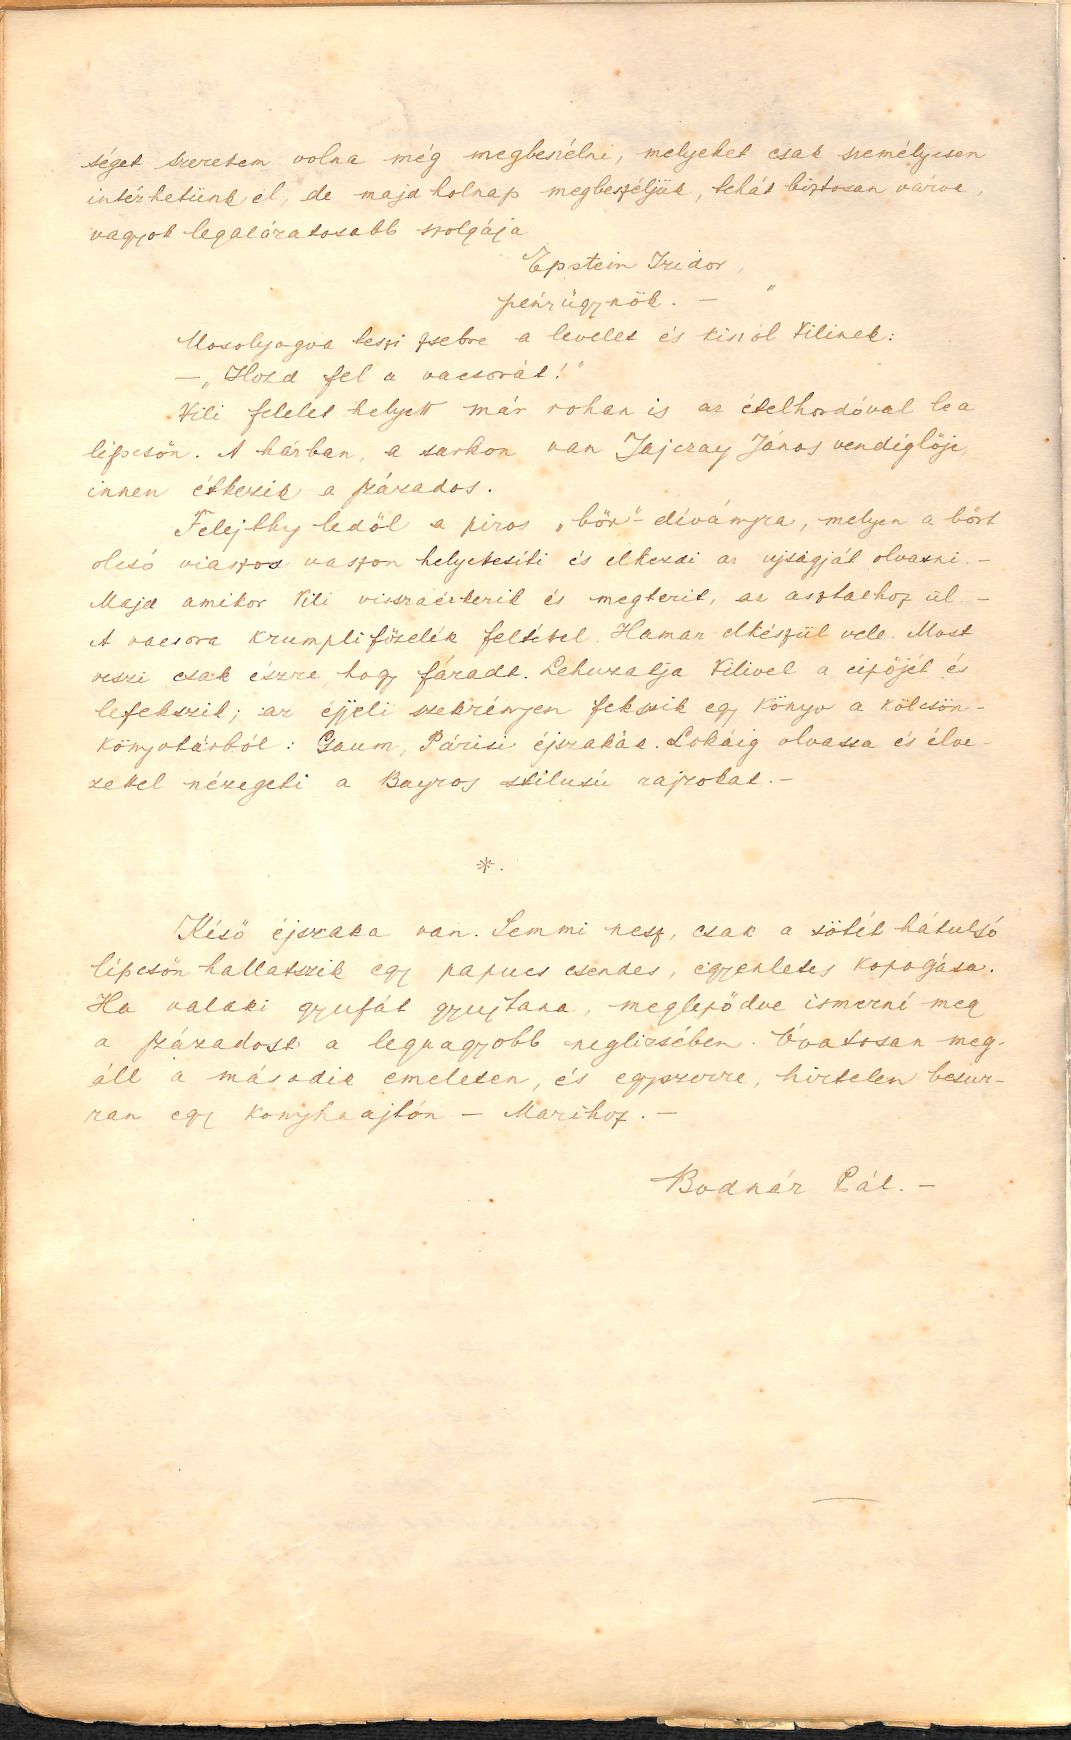 séget szeretem volna még megbeszélni, melyeket csak személyesen
intézhetünk el, de majd holnap megbeszéljük, tehát biztosan várva,
vagyok legalázatosabb szolgája
Epstein Izidor,
pénzügynök. — "
Mosolyogva teszi zsebre a levelet és kiszól Vilinek:
— „Hozd fel a vacsorát!"
Vili felelet helyett már rohan is az ételhordóval le a
lépcsőn. A házban, a sarkon van Jajczay János vendéglője,
innen étkezik a százados.
Felejthy ledől a piros „bőr"-díványra, melyen a bőrt
olcsó viaszos vaszon helyetesíti és elkezdi az ujságját olvasni. —
Majd amikor Vili visszaérkezik és megterít, az asztalhoz ül. —
A vacsora krumplifőzelék feltéttel. Hamar elkészül vele. Most
veszi csak észre, hogy fáradt. Lehuzatja Vilivel a cipőjét és
lefekszik; az éjjeli szekrényen fekszik egy könyv a kölcsön-
könyvtárból: Gaum, Párisi éjszakák. Sokáig olvassa és élve-
zettel nézegeti a Bayros stílusú rajzokat. —
*.
Késő éjszaka van. Semmi nesz, csak a sötét hátulsó
lépcsőn hallatszik egy papucs csendes, egyenletes kopogása.
Ha valaki gyufát gyujtana, meglepődve ismerné meg
a századost a legnagyobb neglizsében. Óvatosan meg-
áll a második emeleten, és egyszerre, hirtelen besur-
ran egy konyhaajtón — Marihoz. —
Bodnár Pál. —